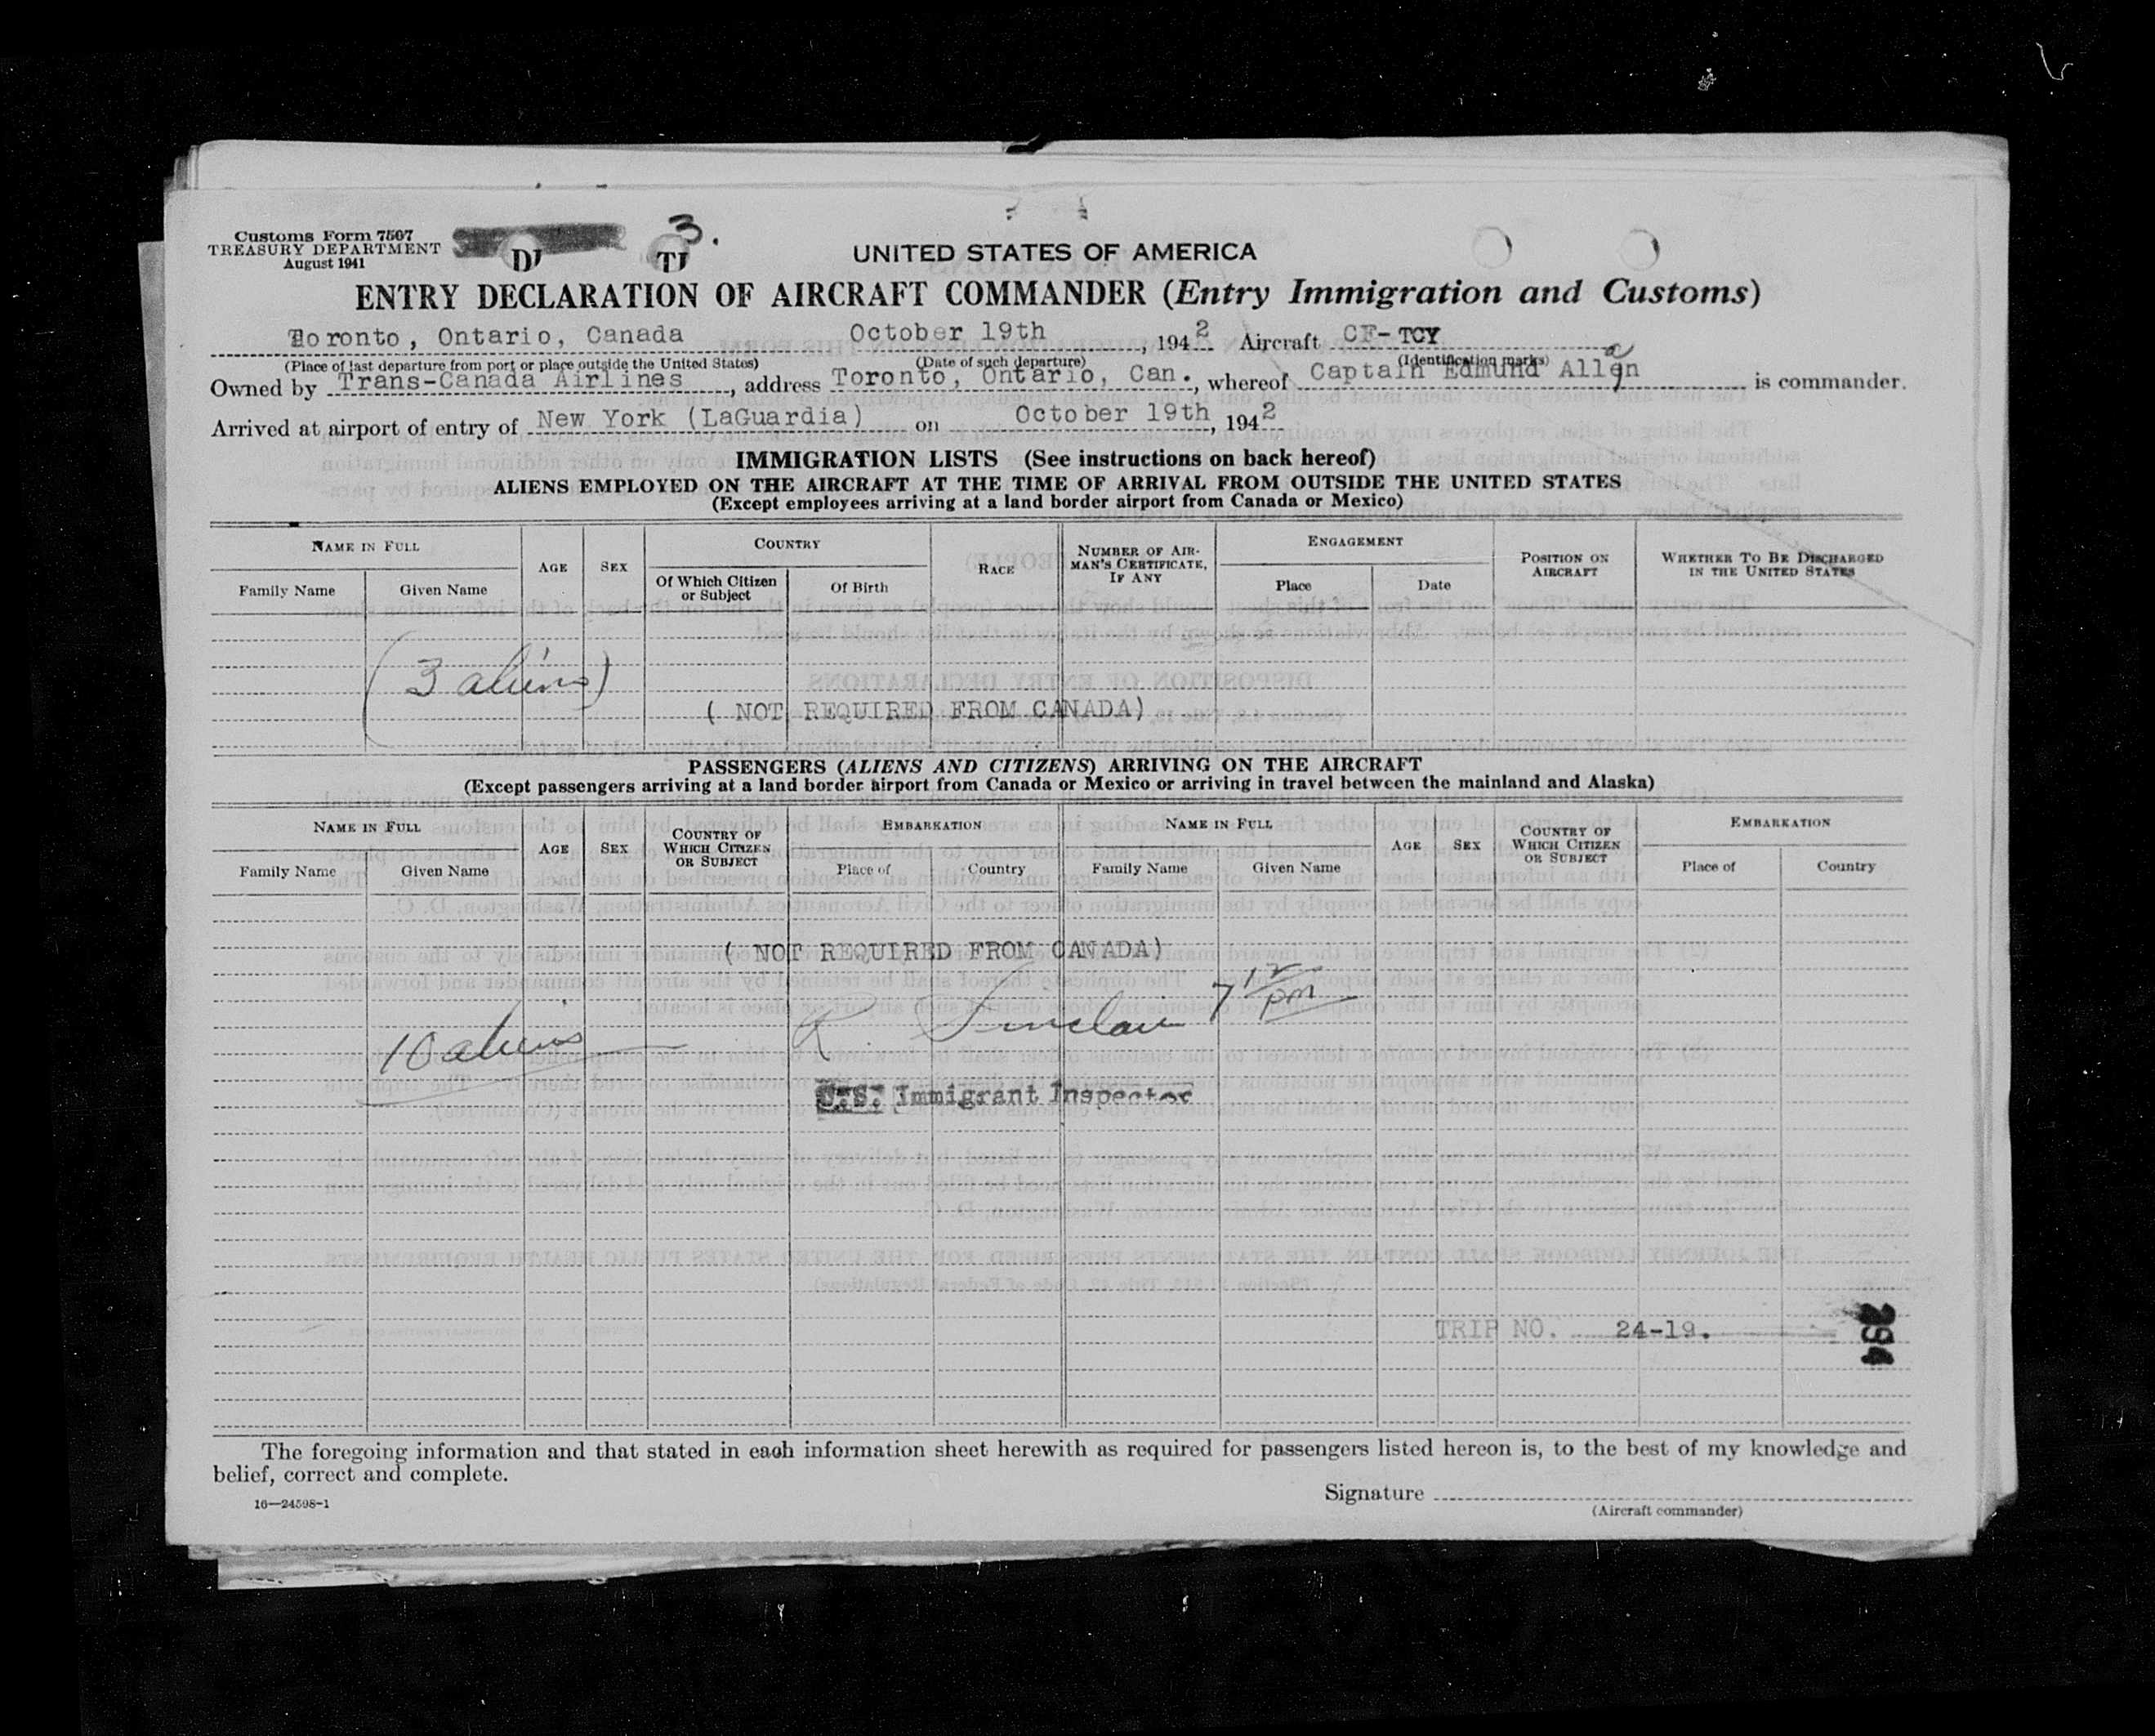 Customs Form 7507
TREASURY DEPARTMENT
August 1941
DJ TJ 3.
UNITED STATES OF AMERICA
ENTRY DECLARATION OF AIRCRAFT COMMANDER (Entry Immigration and Customs)
Toronto, Ontario, Canada October 19th, 1942 Aircraft CF-TCY
(Place of last departure from port or place outside the United States) (Date of such departure) (Identification marks)
Owned by Trans-Canada Airlines, address Toronto, Ontario, Can., whereof Captain Edmund Allan is commander.
Arrived at airport of entry of New York (LaGuardia) on October 19th, 1942
IMMIGRATION LISTS (See instructions on back hereof)
ALIENS EMPLOYED ON THE AIRCRAFT AT THE TIME OF ARRIVAL FROM OUTSIDE THE UNITED STATES
(Except employees arriving at a land border airport from Canada or Mexico)
NAME IN FULL AGE SEX COUNTRY RACE NUMBER OF AIRMAN'S CERTIFICATE, IF ANY ENGAGEMENT POSITION ON AIRCRAFT WHETHER TO BE DISCHARGED IN THE UNITED STATES
Family Name Given Name Of Which Citizen or Subject Of Birth Place Date
(3 aliens)
( NOT REQUIRED FROM CANADA)
PASSENGERS (ALIENS AND CITIZENS) ARRIVING ON THE AIRCRAFT
(Except passengers arriving at a land border airport from Canada or Mexico or arriving in travel between the mainland and Alaska)
NAME IN FULL AGE SEX COUNTRY OF WHICH CITIZEN OR SUBJECT EMBARKATION NAME IN FULL AGE SEX COUNTRY OF WHICH CITIZEN OR SUBJECT EMBARKATION
Family Name Given Name Place of Country Family Name Given Name Place of Country
( NOT REQUIRED FROM CANADA)
R. Sinclair 7 12 pm
10 aliens
U.S. Immigrant Inspector
TRIP NO. 24-19.
294
The foregoing information and that stated in each information sheet herewith as required for passengers listed hereon is, to the best of my knowledge and
belief, correct and complete.
Signature
16—24598-1
(Aircraft commander)